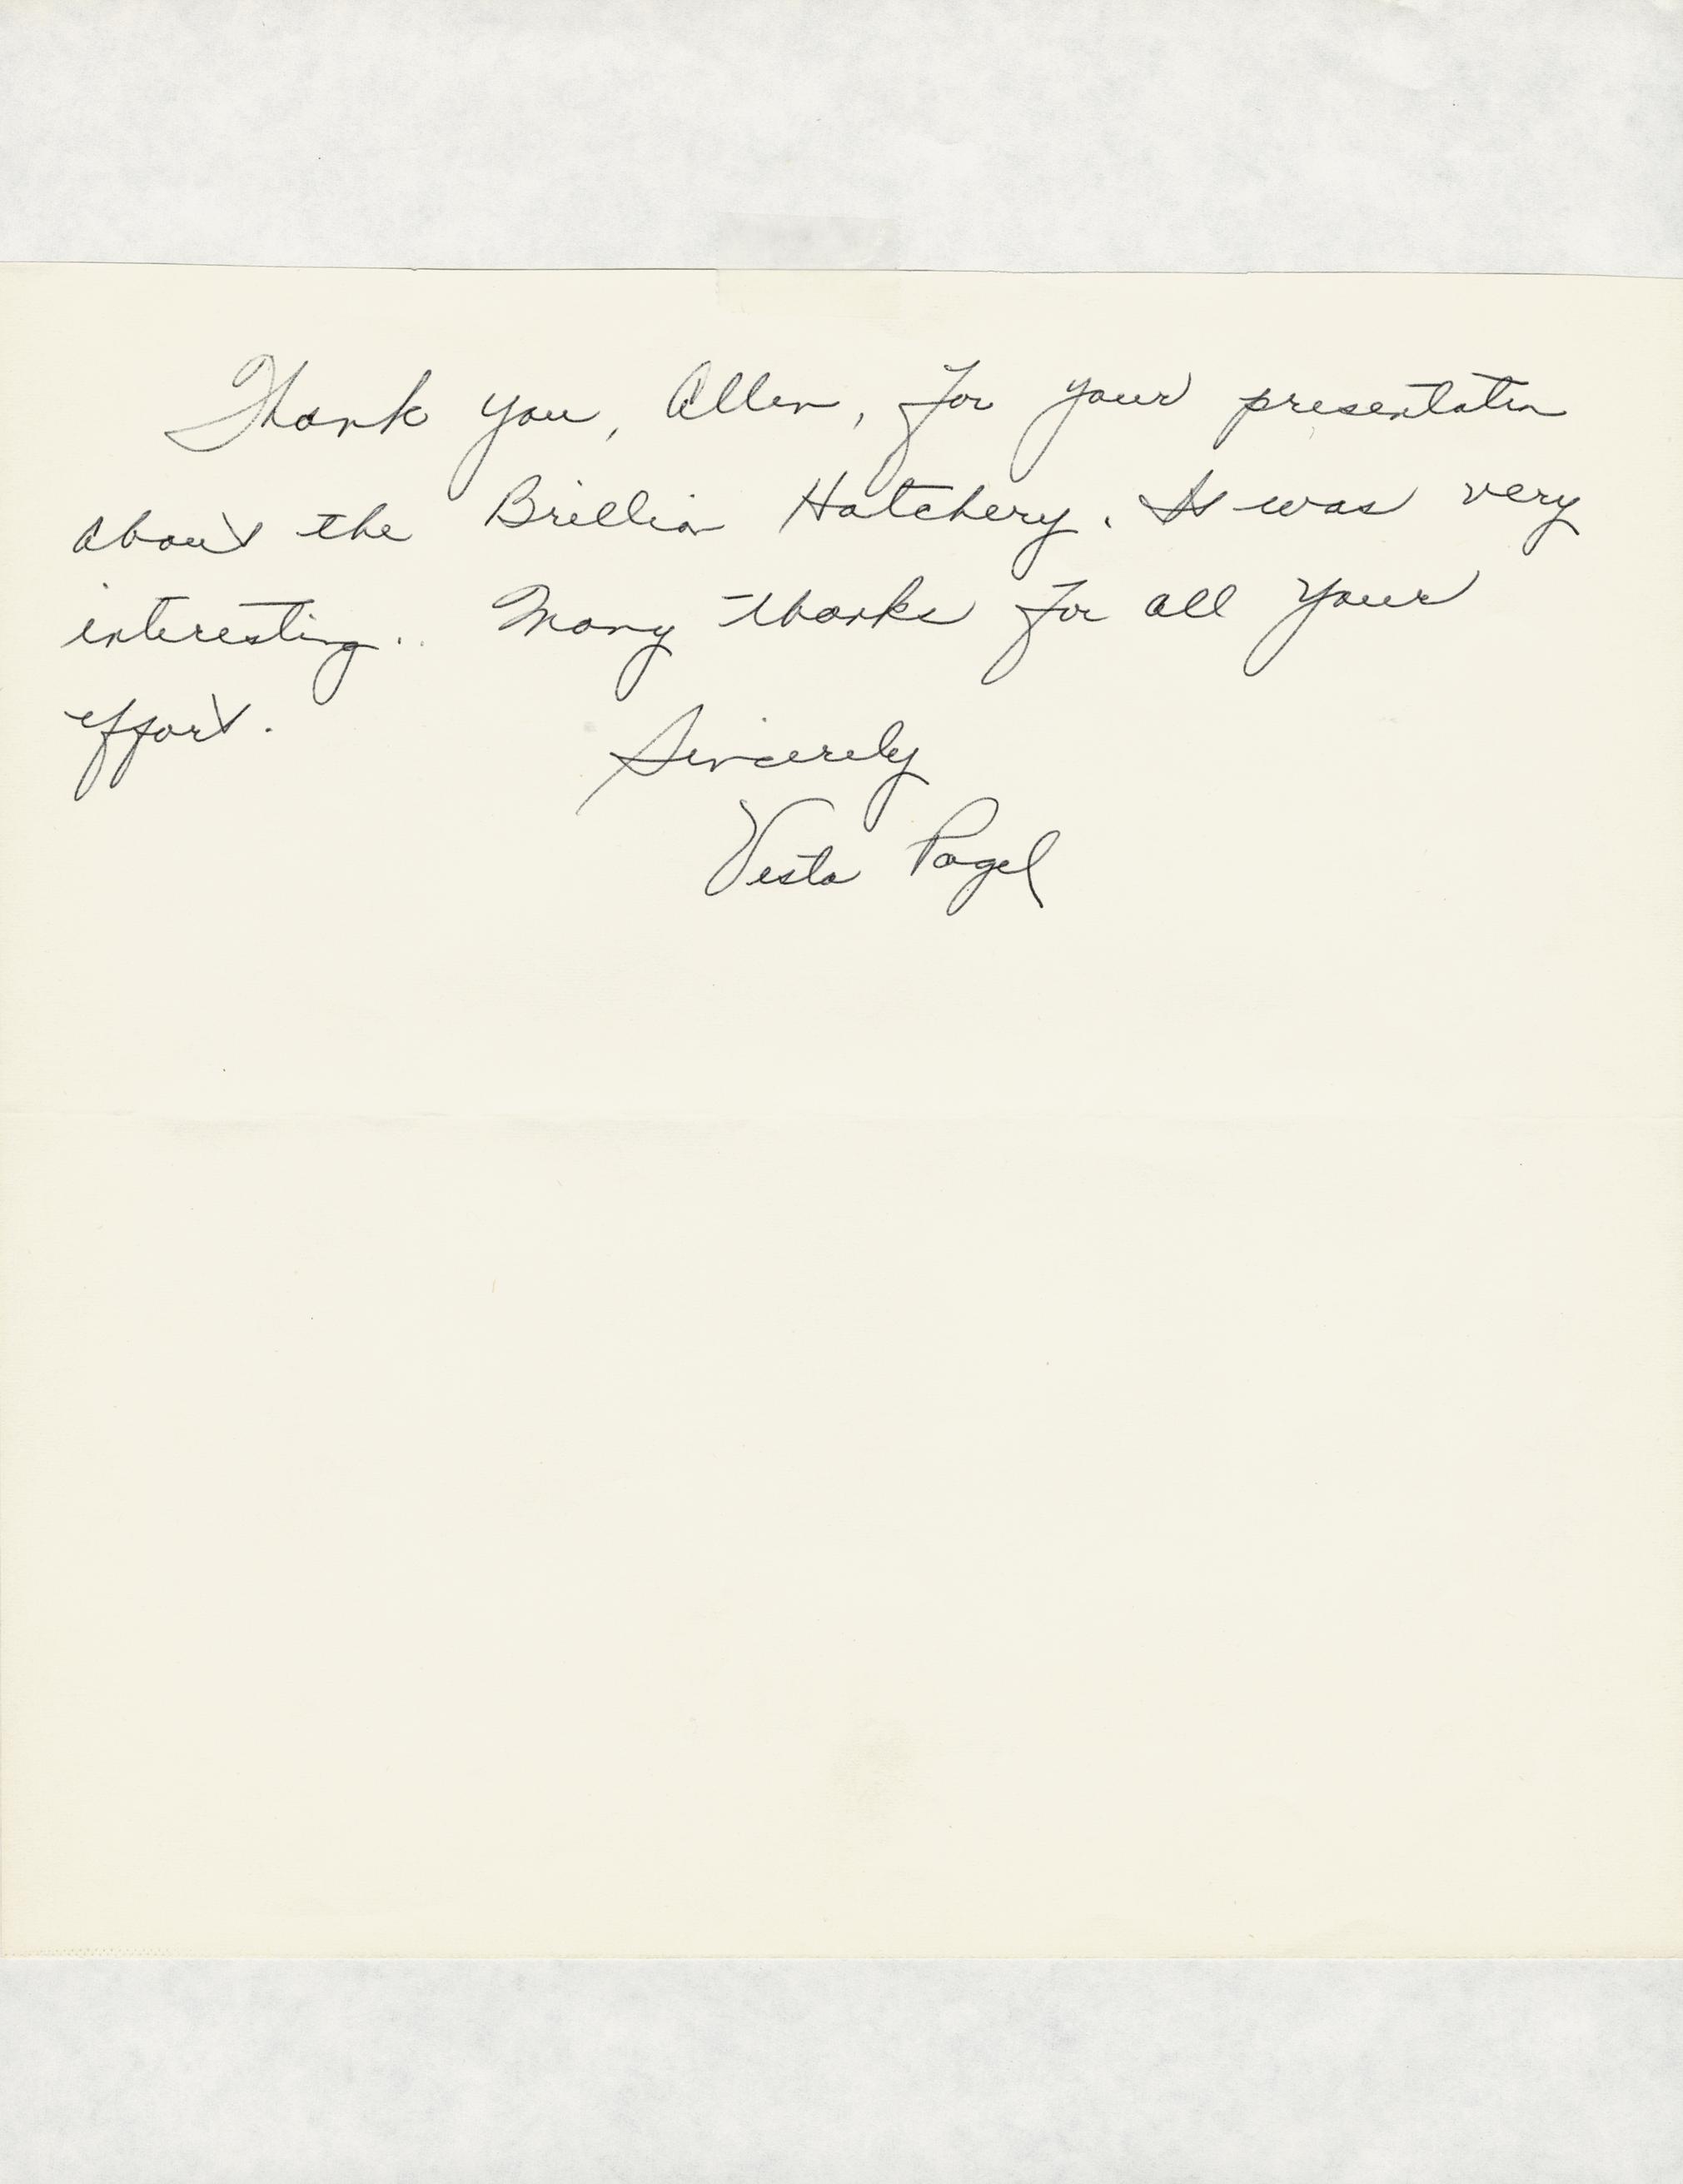 Thank you, Allen, for your presentation
about the Brillion Hatchery. It was very
interesting. Many thanks for all your
effort.
Sincerely
Vesta Pagel